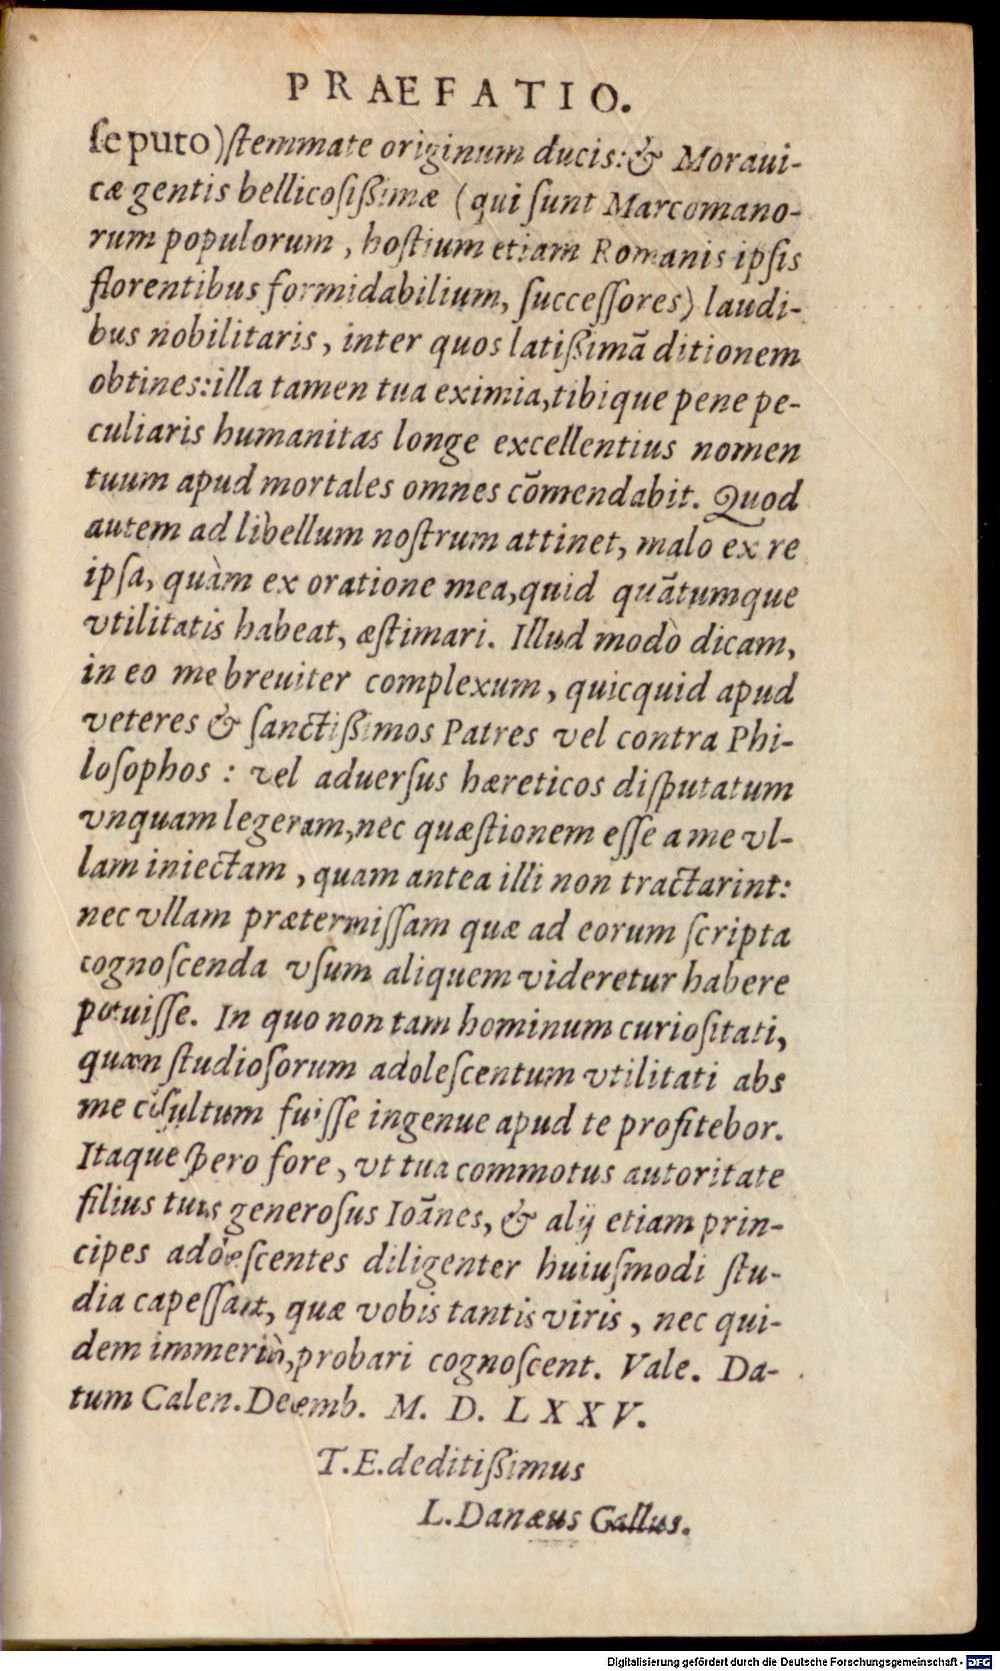 PRAEFATIO.
ſe puto) ſtemmate originum ducis: & Moraui-
cæ gentis bellicoſiſsimæ (qui ſunt Marcomano-
rum populorum, hoſtium etiam Romanis ipſis
florentibus formidabilium, ſucceſſores) laudi-
bus nobilitaris, inter quos latiſsimã ditionem
obtines: illa tamen tua eximia, tibique pene pe-
culiaris humanitas longe excellentius nomen
tuum apud mortales omnes cõmendabit. Quod
autem ad libellum noſtrum attinet, malo ex re
ipſa, quàm ex oratione mea, quid quãtumque
vtilitatis habeat, æſtimari. Illud modò dicam,
in eo me breuiter complexum, quicquid apud
veteres & ſanctiſsimos Patres vel contra Phi-
loſophos: vel aduerſus hæreticos diſputatum
vnquam legeram, nec quæſtionem eſſe a me vl-
lam iniectam, quam antea illi non tractarint:
nec vllam prætermiſſam quæ ad eorum ſcripta
cognoſcenda vſum aliquem videretur habere
potuiſſe. In quo non tam hominum curioſitati,
quam ſtudioſorum adoleſcentum vtilitati abs
me cõſultum fuiſſe ingenue apud te profitebor.
Itaque ſpero fore, vt tua commotus autoritate
filius tuus generoſus Ioãnes, & alij etiam prin-
cipes adoleſcentes diligenter huiuſmodi ſtu-
dia capeſſant, quæ vobis tantis viris, nec qui-
dem immeritò, probari cognoſcent. Vale. Da-
tum Calen. Decemb. M. D. LXXV.
T. E. deditiſsimus
L. Danæus Gallus.
Digitalisierung gefördert durch die Deutsche Forschungsgemeinschaft - DFG